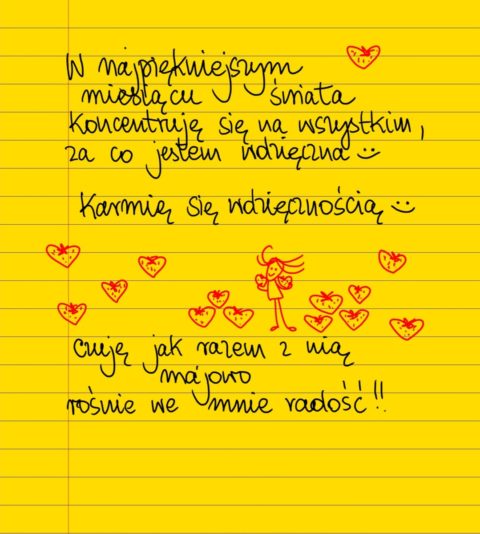 W najpiękniejszym
miesiącu świata
koncentruję się na wszystkim,
za co jestem wdzięczna :)
Karmię się wdzięcznością :)
czuję jak razem z nią
majowo
rośnie we mnie radość!!